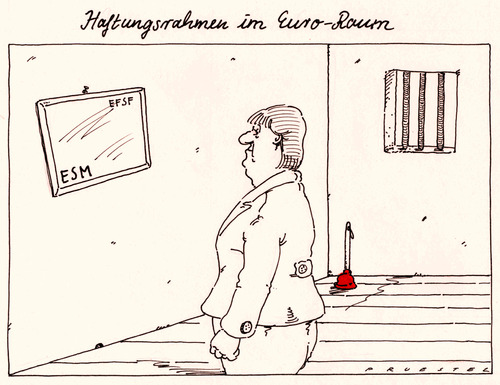 Haftungsrahmen im Euro-Raum
EFSF
ESM
PRUESTEL